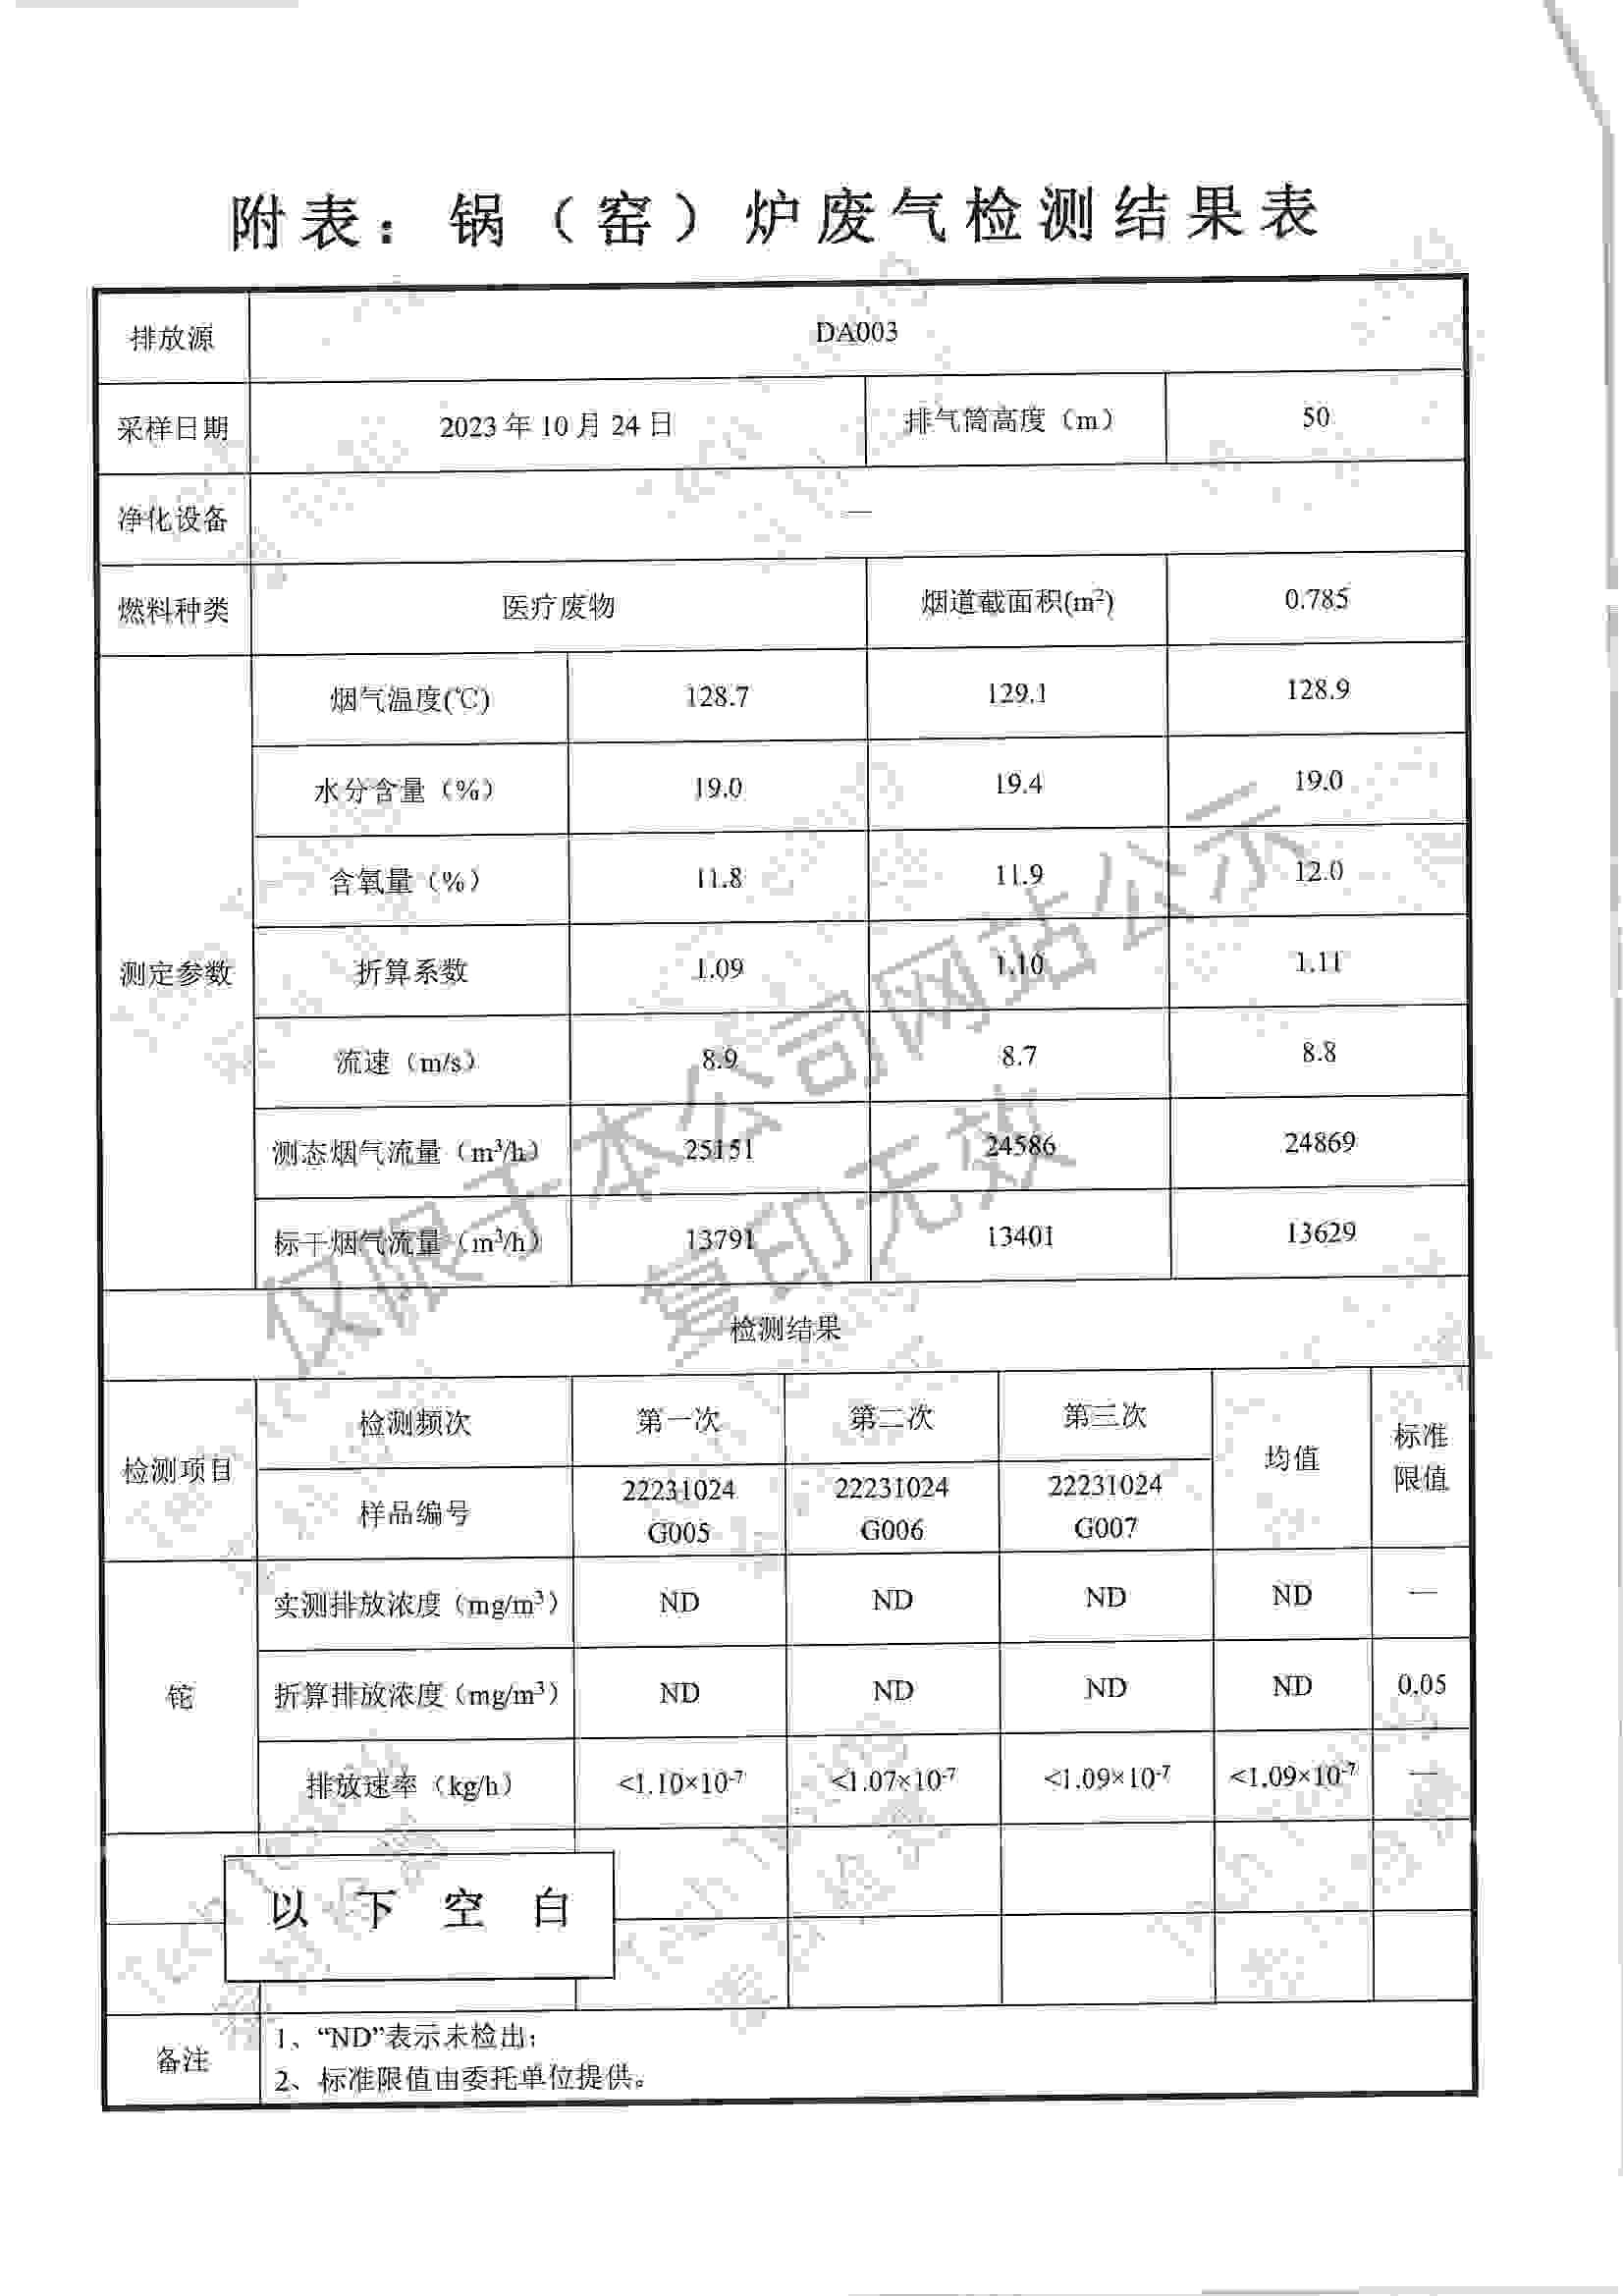 附表：锅（窑）炉废气检测结果表
排放源 DA003
采样日期 2023年10月24日 排气筒高度（m） 50
净化设备 —
燃料种类 医疗废物 烟道截面积(m²) 0.785
测定参数
烟气温度(℃) 128.7 129.1 128.9
水分含量（%） 19.0 19.4 19.0
含氧量（%） 11.8 11.9 12.0
折算系数 1.09 1.10 1.11
流速（m/s） 8.9 8.7 8.8
测态烟气流量（m³/h） 25151 24586 24869
标干烟气流量（m³/h） 13791 13401 13629
检测结果
检测项目 检测频次 第一次 第二次 第三次 均值 标准限值
样品编号 22231024G005 22231024G006 22231024G007
铊
实测排放浓度（mg/m³） ND ND ND ND —
折算排放浓度（mg/m³） ND ND ND ND 0.05
排放速率（kg/h） <1.10×10⁻⁷ <1.07×10⁻⁷ <1.09×10⁻⁷ <1.09×10⁻⁷ —
以下空白
备注
1、“ND”表示未检出；
2、标准限值由委托单位提供。
仅限于本公司网站公示
复印无效